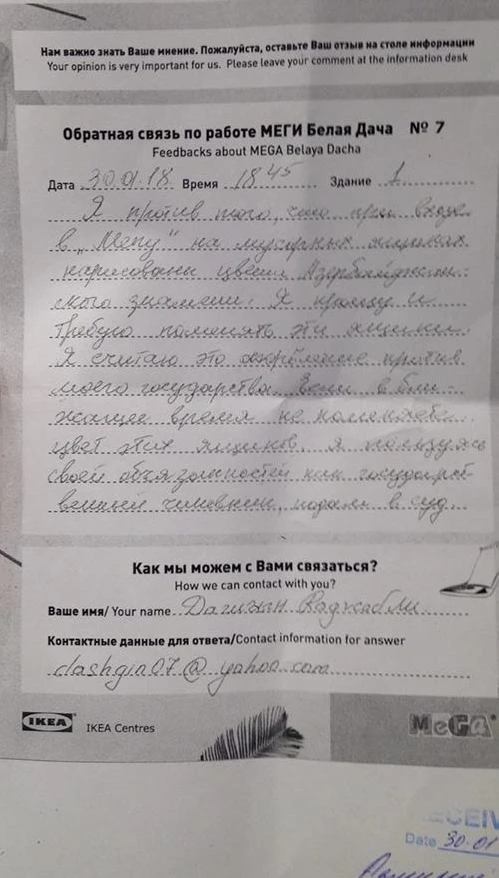 Нам важно знать Ваше мнение. Пожалуйста, оставьте Ваш отзыв на столе информации
Your opinion is very important for us. Please leave your comment at the information desk
Обратная связь по работе МЕГИ Белая Дача № 7
Feedbacks about MEGA Belaya Dacha
Дата 30.01.18 Время 18 45 Здание 1
Я против того, что при входе
в „Мегу" на мусорных ящиках
нарисованы цвета Азербайджан-
ского знамени. Я прошу и
требую поменять эти ящики.
Я считаю это оскорбление против
моего государства. Если в бли-
жащее время не поменяете
цвет этих ящиков, я пользуясь
своей обязанностей как государст
венный чиновник, подам в суд
Как мы можем с Вами связаться?
How we can contact with you?
Ваше имя/ Your name Дашгин
Контактные данные для ответа/Contact information for answer
dashgin07@yahoo.com
IKEA IKEA Centres MEGA
Date 30.01